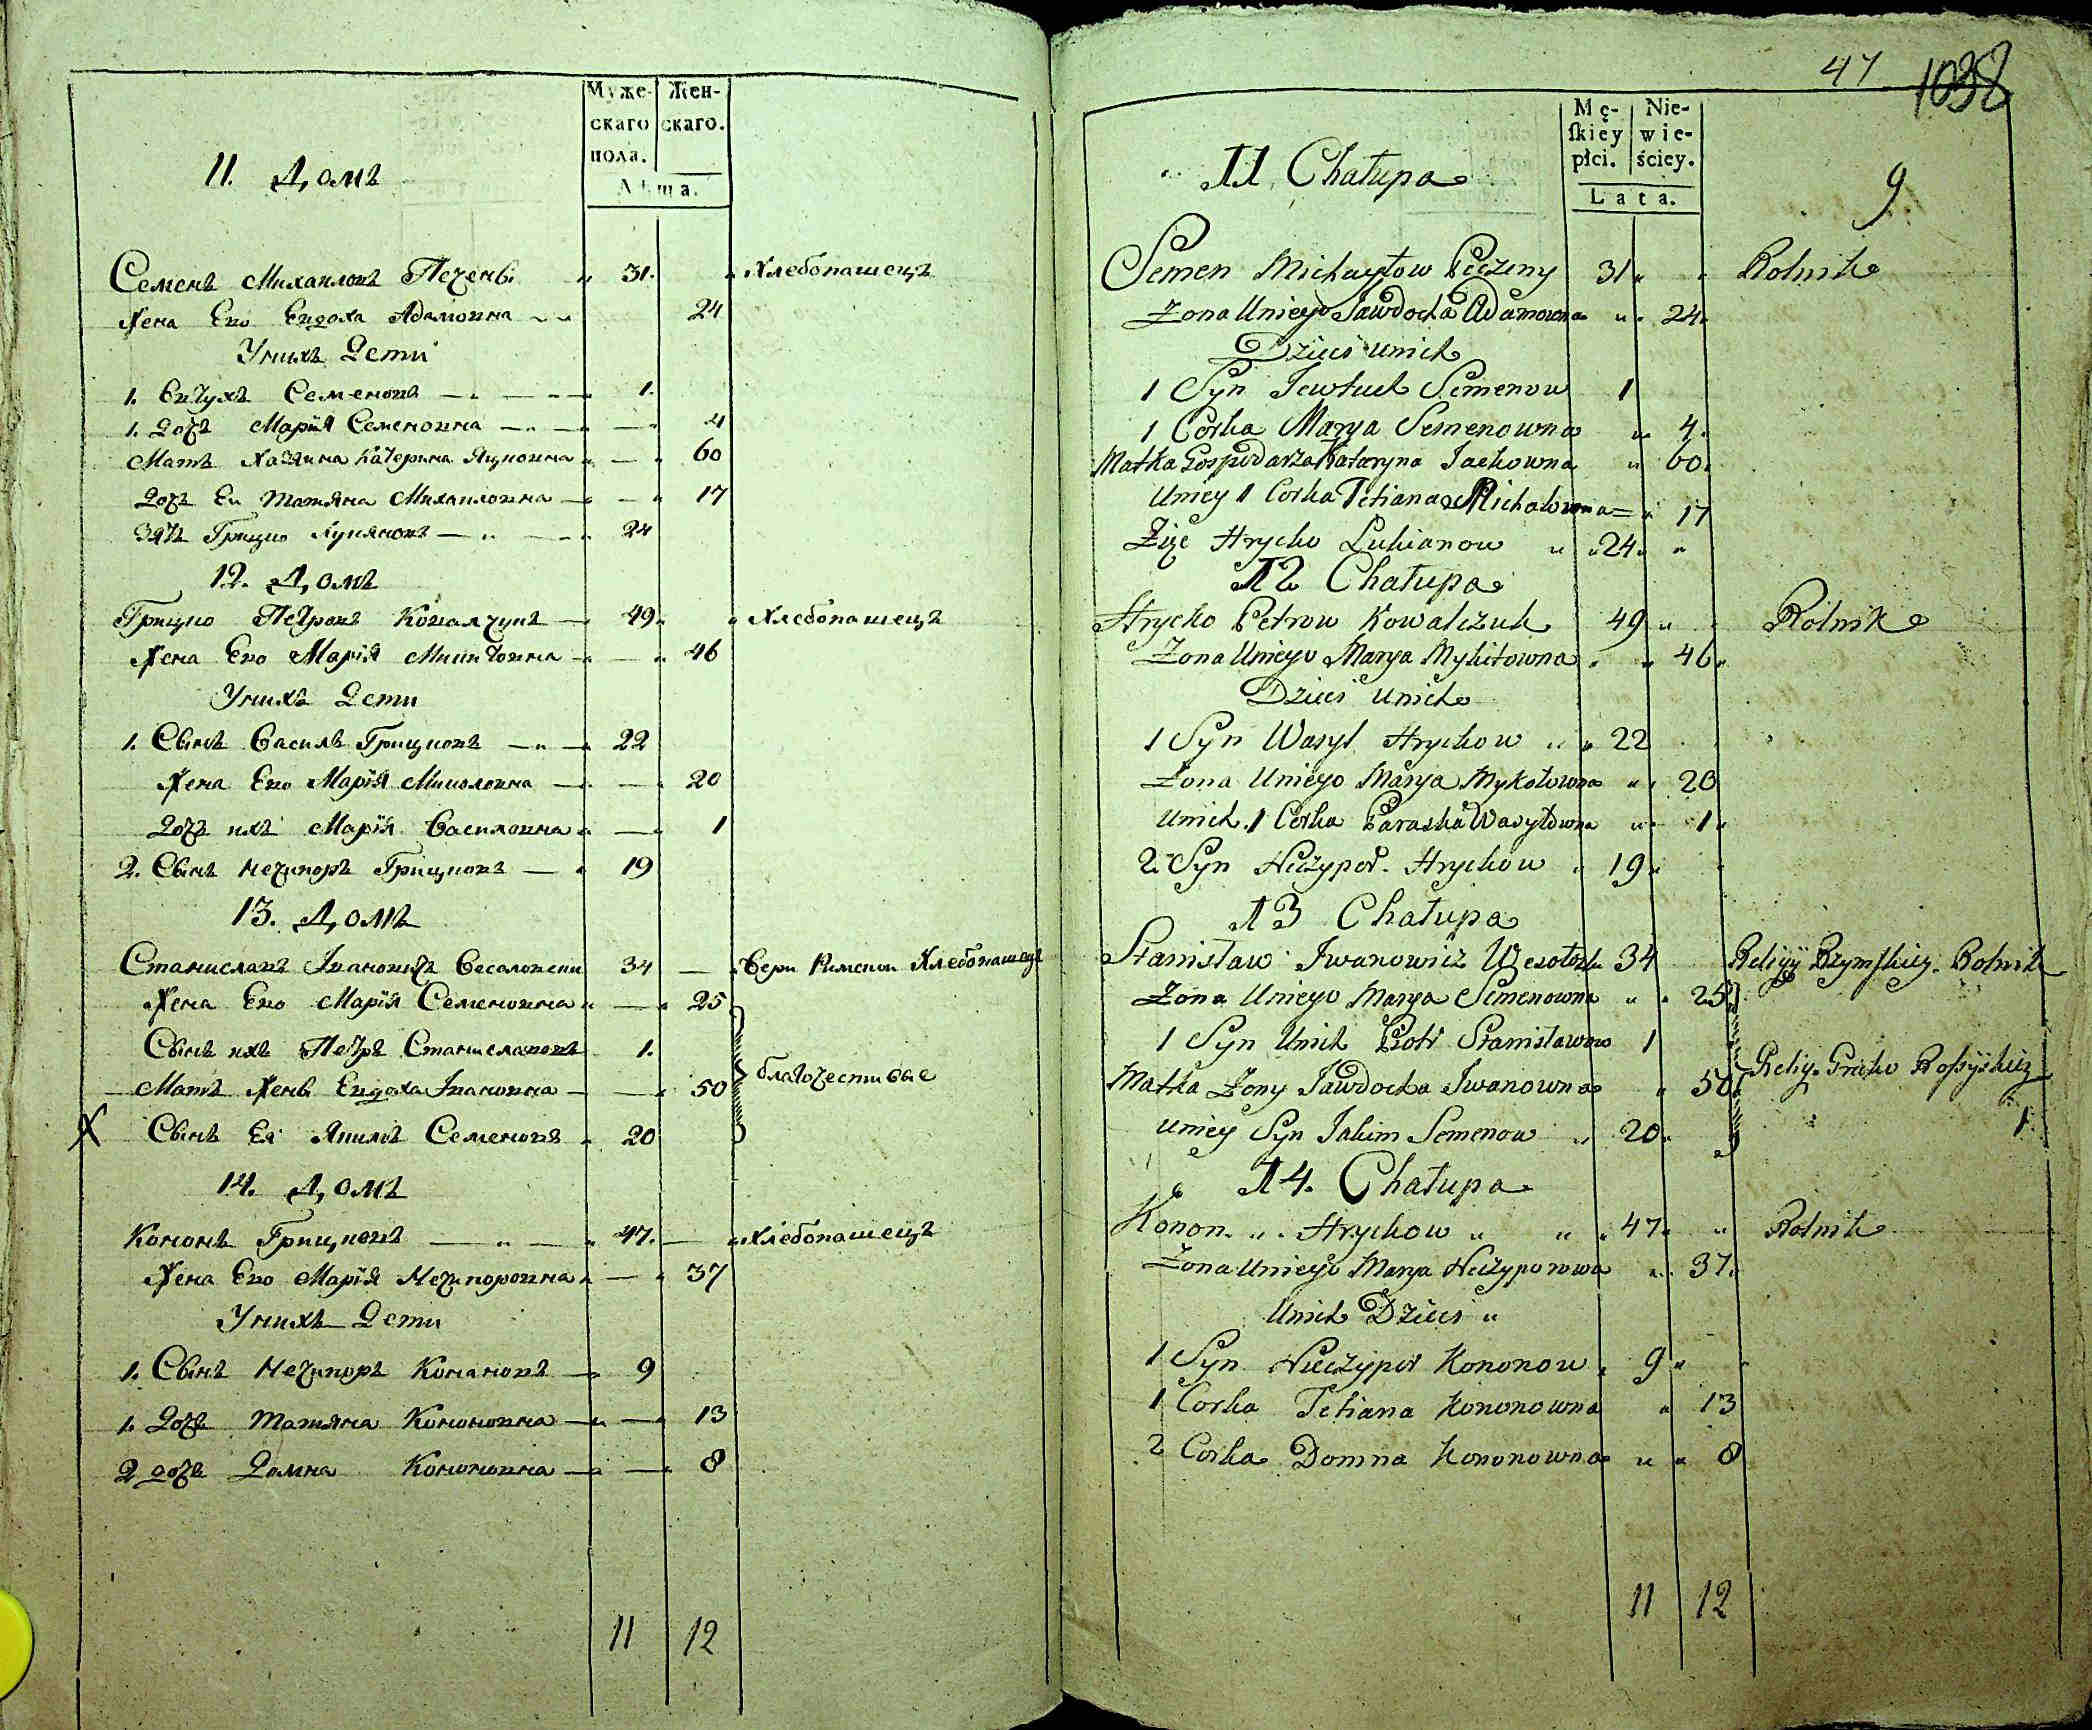 Муже-
скаго
пола.
Жен-
скаго.
Лѣта.
11. Домъ
Семенъ Михаиловъ Печены „ 31. „ Хлебопашецъ
Жена Его Евдоха Адамовна 24
Унихъ Дети
1. Евтухъ Семеновъ 1.
1. Дочь Марїя Семеновна 4
Мать Хазяина Катерина Яцковна 60
Дочь Еи Татяна Михаиловна 17
Зять Грицко Лукяновъ 24
12. Домъ
Грицко Петровъ Ковалчукъ 49 „ Хлебопашецъ
Жена Его Марїя Микитовна 46
Унихъ Дети
1. Сынъ Василь Грицковъ 22
Жена Его Марїя Миколовна 20
Дочь ихъ Марїя Василовна 1
2. Сынъ Нечипоръ Грицковъ 19
13. Домъ
Станиславъ Івановичъ Весоловски 34 Вери Римскои Хлебопашецъ
Жена Его Марїя Семеновна 25
Сынъ ихъ Петръ Станиславовъ 1.
Мать Жены Евдоха Івановна 50 благочестивые
X Сынъ Ея Якимъ Семеновъ 20
14. Домъ
Кононъ Грицковъ 47. „ Хлебопашецъ
Жена Его Марїя Нечипоровна 37
Унихъ Дети
1. Сынъ Нечипоръ Конановъ 9
1. Дочь Татяна Кононовна 13
2 дочь Домна Кононовна 8
11 12
47 1038
Mę-
ſkiey
płci.
Nie-
wie-
ściey.
Lata.
11 Chałupa 9
Semen Michayłow Peczeny 31 Rolnik
Żona Uniego Jawdocha Adamowna 24
Dzieci unich
1 Syn Jewtuch Semenow 1
1 Corka Marya Semenowna 4
Matka Gospodarza Kataryna Jackowna 60
Uniey 1 Corka Tetiana Michałowna 17
Zięć Hrycko Lukianow 24
12 Chałupa
Hrycko Petrow Kowalczuk 49 Rolnik
Żona Uniego Marya Mykitowna 46
Dzieci unich
1 Syn Wasyl Hryckow 22
Żona Uniego Marya Mykołowna 20
Unich 1 Corka Paraska Wasylowna 1
2 Syn Nieczypor Hryckow 19
13 Chałupa
Stanisław Iwanowicz Wesołoski 34 Religij Rzymſkiey. Rolnik
Żona Uniego Marya Semenowna 25
1 Syn Unich Piotr Stanisławow 1
Matka Żony Jawdocha Iwanowna 50 Relig. Greko Rossyiskiey
Uniey Syn Jakim Semenow 20 1
14. Chałupa
Konon Hryckow 47 Rolnik
Żona Uniego Marya Nieczyporowa 37
Unich Dzieci
1 Syn Nieczypor Kononow 9
1 Corka Tetiana Kononowna 13
2 Corka Domna Kononowna 8
11 12